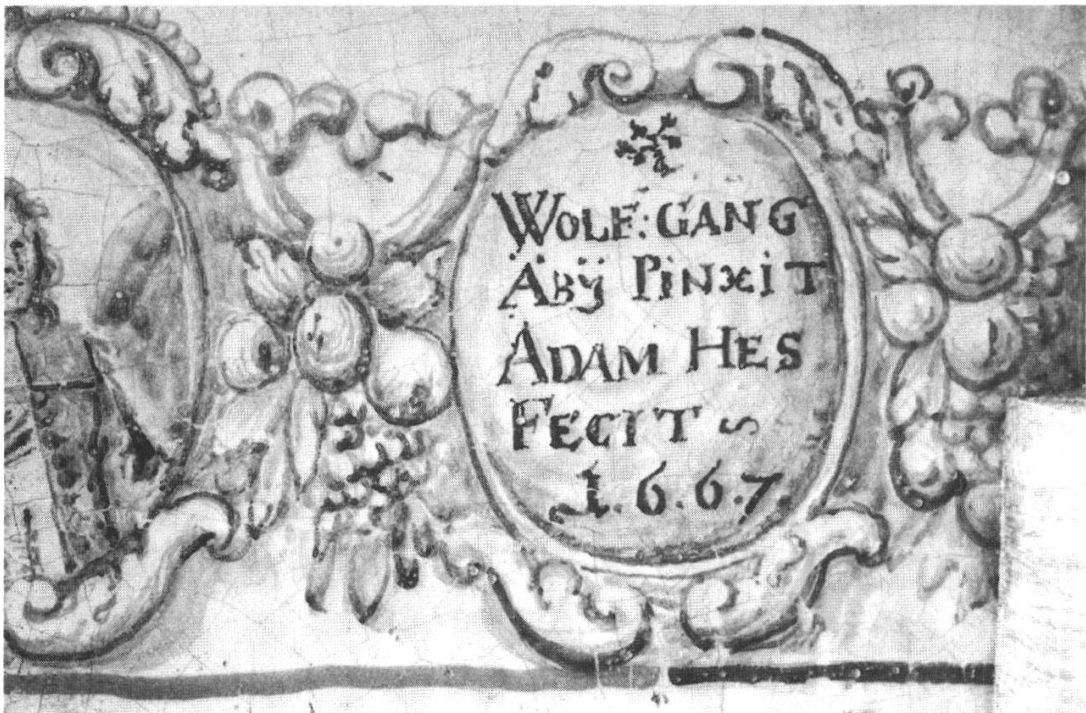 WOLF: GANG
ABÿ PINXIT
ADAM HES
FECIT ~
1.6.6.7.